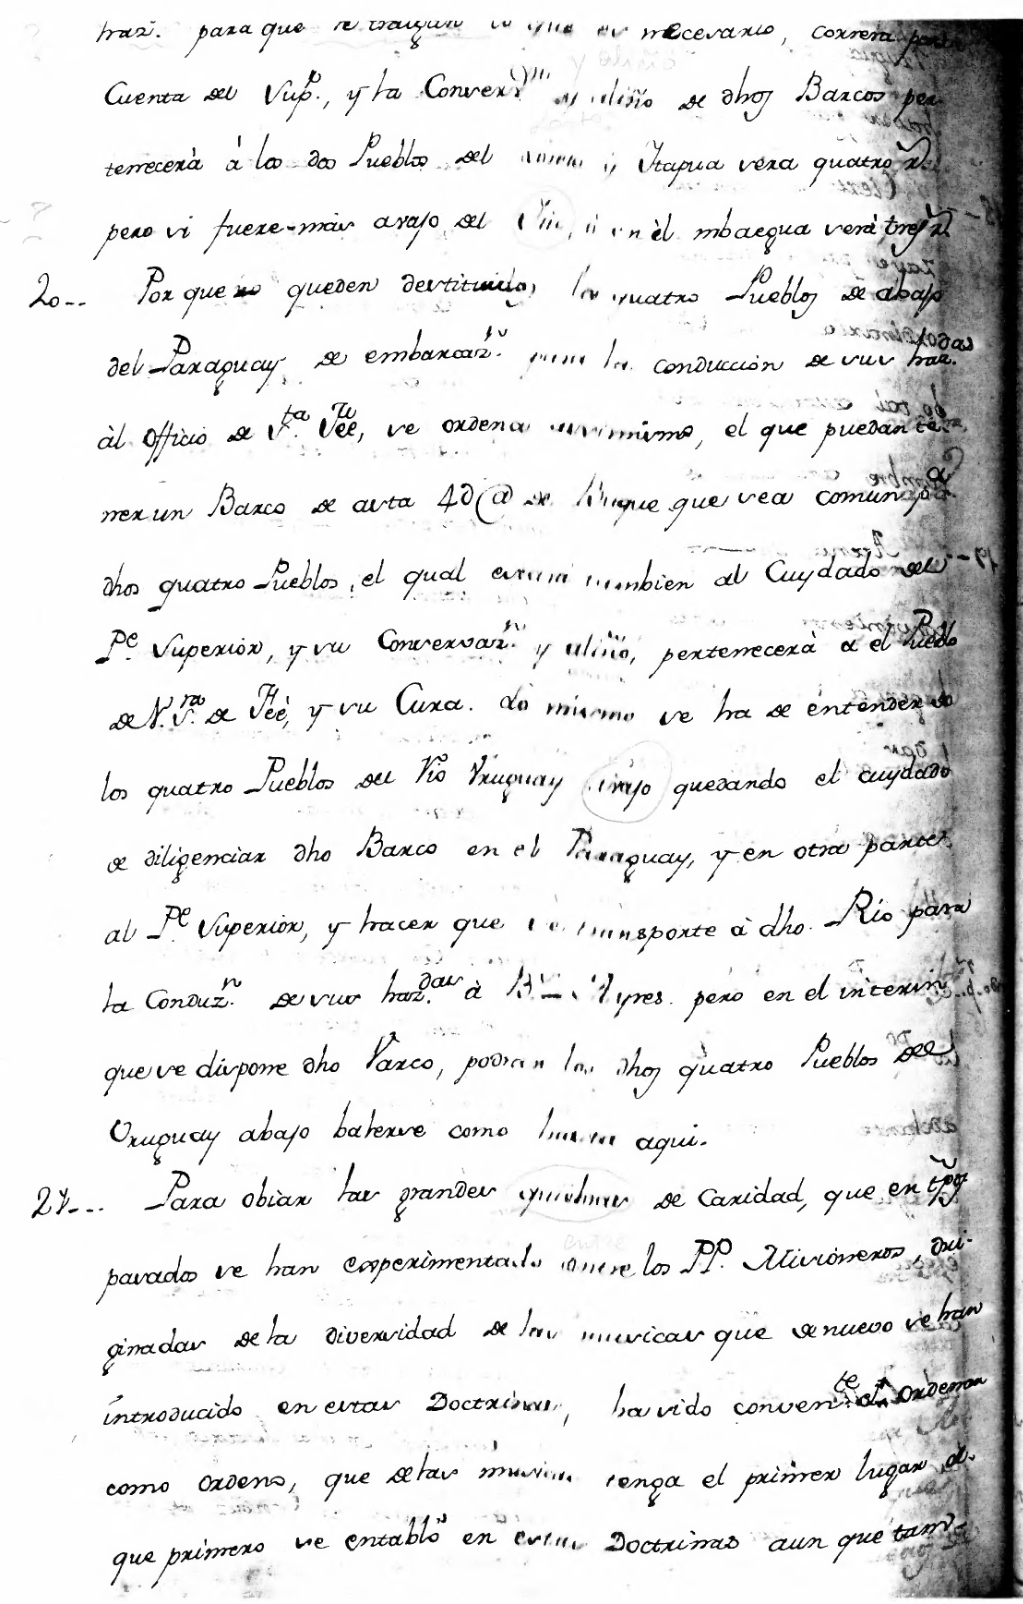 haz.ᵃ para que se traigan lo que es necesario, correra por
Cuenta del Sup.ʳ, y la Conservⁿ y aliño de dhos Barcos per-
tenecerà à los dos Pueblos del y Itapua sera quatro rˢ
pero si fuere mas avajo del ò en èl mbaequa serà tres rˢ
20-- Por que no queden destituidos los quatro Pueblos de abajo
del Paraguay de embarcaz.ⁿ para la conducción de sus haz.
àl Officio de S.ᵗᵃ Feè, se ordena assimismo, el que puedan te-
ner un Barco de asta 4@ de Buque que sea comun pᵃ
dhos quatro Pueblos, el qual estarà tambien al Cuydado del
Pᵉ Superior, y su Conservaz.ⁿ y aliño, pertenecerà a el Pueblo
de N. S.ʳᵃ de Feè, y su Cura. Lo mismo se ha de entender de
los quatro Pueblos del Rio Vruguay avajo quedando el cuydado
de diligenciar dho Barco en el Paraguay, y en otra parte
al Pᵉ Superior, y hacer que se transporte à dho Rio para
la Conduz.ⁿ de sus haz.ᵈᵃˢ à Bˢ Ayres. pero en el interin
que se dispone dho Varco, podran los dhos quatro Pueblos del
Vruguay abajo balerse como hasta aqui.
21--- Para obiar las grandes quiebras de Caridad, que en tpos
pasados se han experimentado entre los PP. Missioneros, ori-
ginadas de la diversidad de las musicas que de nuevo se han
introducido en estas Doctrinas, ha sido conven.ᵗᵉ el ordenar
como ordeno, que de las musicas tenga el primer lugar la
que primero se entablò en estas Doctrinas aun que tam-